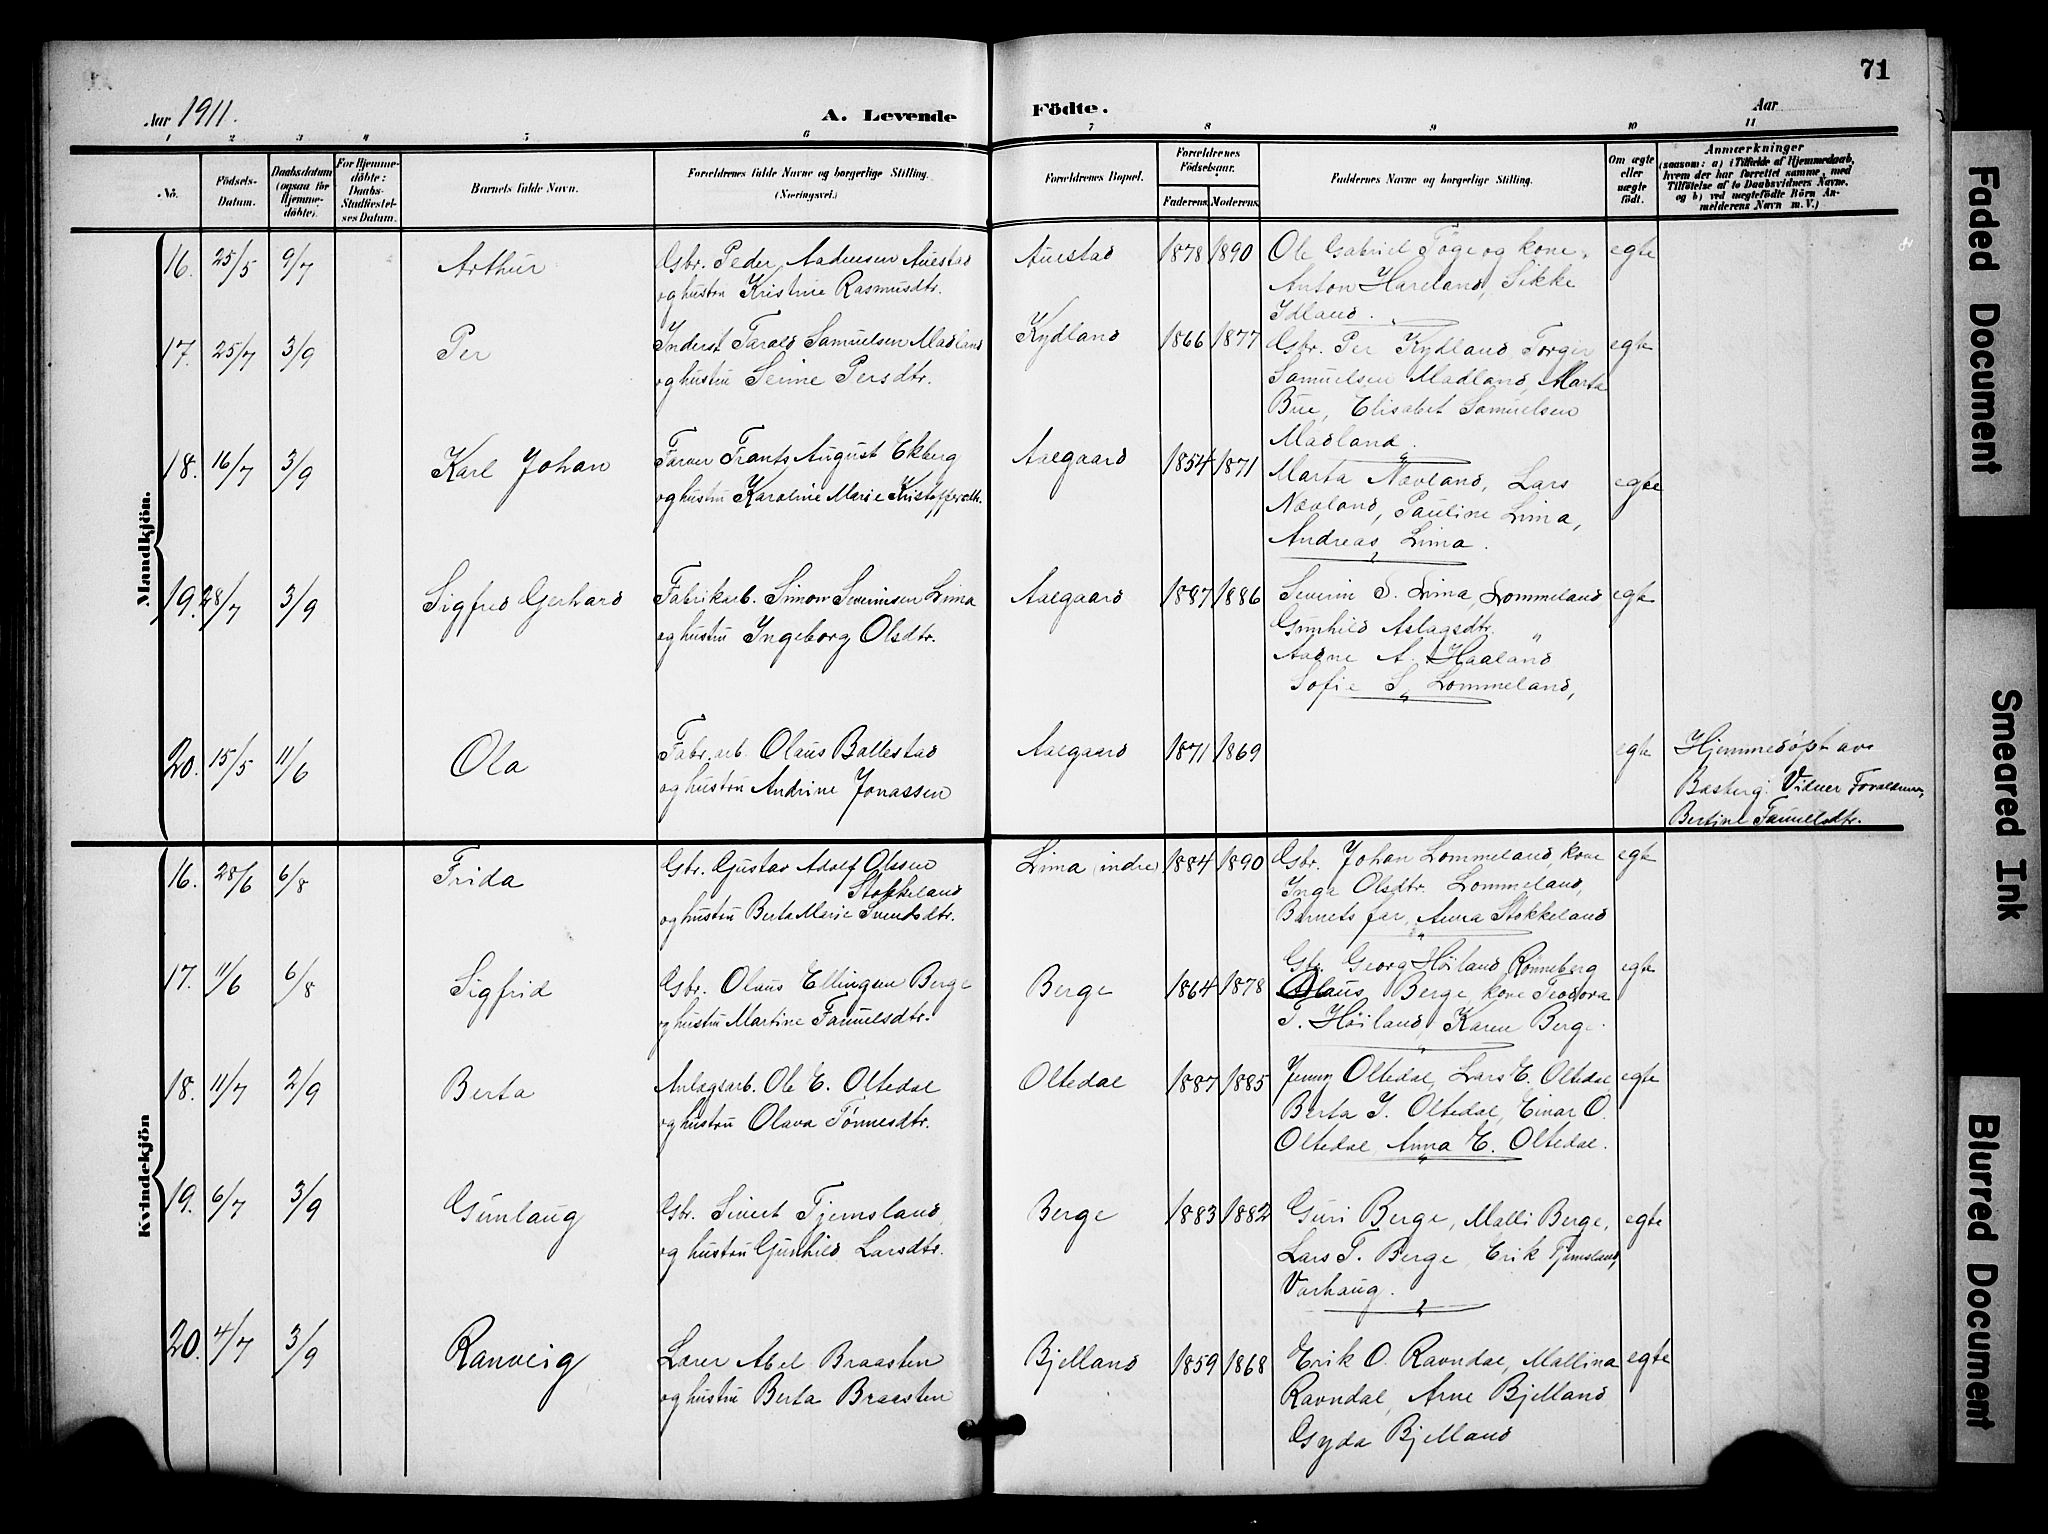 71
Aar 1911.
A. Levende Födte.
Aar
1 2 3 4 5 6 7 8 9 10 11
No.
Födsels-Datum.
Daabsdatum (ogsaa for Hjemme-döbte).
For Hjemme-döbte: Daabs-Stadfæstel-ses Datum.
Barnets fulde Navn.
Forældrenes fulde Navne og borgerlige Stilling. (Næringsvei.)
Forældrenes Bopæl.
Forældrenes Födselsaar.
Faderens. Moderens.
Faddernes Navne og borgerlige Stilling.
Om ægte eller uægte födt.
Anmærkninger
(saasom: a) i Tilfælde af Hjemmedaab, hvem der har forrettet samme, med Tilföielse af to Daabsvidners Navne, og b) ved uægtefödte Börn Anmelderens Navn m. V.)
Mandkjön.
16. 25/5 9/7 Arthur
Gbr. Peder Aadnesen Auestad
og hustru Kristine Rasmusdtr.
Auestad 1878 1890
Ole Gabriel Töge og kone,
Anton Hareland, Sikke
Idland.
egte
17. 25/7 3/9 Per
Inderst Tarald Samuelsen Madland
og hustru Serine Persdtr.
Kydland 1866 1877
Gbr. Per Kydland Torger
Samuelsen Madland, Marta
Bue, Elisabet Samuelsen
Madland.
egte
18. 16/7 3/9 Karl Johan
Farver Frants August Ekberg
og hustru Karoline Marie Kristoffersdtr.
Aalgaard 1854 1871
Marta Nævland, Lars
Nævland, Pauline Lima,
Andreas Lima.
egte
19. 28/7 3/9 Sigfred Gerhard
Fabrikarb. Simon Severinsen Lima
og hustru Ingeborg Olsdtr.
Aalgaard 1887 1886
Severin S. Lima, Lommeland
Gunhild Aslagsdtr. "
Aadne A. Haaland
Sofie S. Lommeland,
egte
20. 15/5 11/6 Ola
Fabr.arb. Olaus Ballestad
og hustru Andrine Jonassen
Aalgaard 1871 1869
egte
Hjemmedöpt av
Basberg. Vidner Forældrene,
Bertine Famuelsdtr.
Kvindekjön
16. 28/6 6/8 Frida
Gbr. Gustav Adolf Olsen
Stokkeland
og hustru Berta Marie Svendsdtr.
Lima (indre) 1884 1890
Gbr. Johan Lommeland, kone
Inga Olsdtr. Lommeland,
Barnets far, Anna Stokkeland
egte
17. 11/6 6/8 Sigfrid
Gbr. Olaus Ellingsen Berge
og hustru Martine Famuelsdtr.
Berge 1864 1878
Gbr. Georg Höiland, Rönneberg
Olaus Berge, kone Teodora
T. Höiland, Karen Berge.
egte
18. 11/7 2/9 Berta
Anlægsarb. Ole E. Oltedal
og hustru Olava Tönnesdtr.
Oltedal 1887 1885
Jenny Oltedal, Lars E. Oltedal,
Berta I. Oltedal, Einar O.
Oltedal, Anna E. Oltedal.
egte
19. 6/7 3/9 Gunlaug
Gbr. Sivert Tjemsland,
og hustru Gunhild Larsdtr.
Berge 1883 1882
Guri Berge, Malli Berge,
Lars T. Berge, Erik Tjemsland,
Varhaug.
egte
20. 4/7 3/9 Ranveig
Lærer Abel Braasten
og hustru Berta Braasten
Bjelland 1859 1868
Erik O. Ravndal, Mallina
Ravndal, Arne Bjelland
Gyda Bjelland
egte
Faded Document
Smeared Ink
Blurred Document